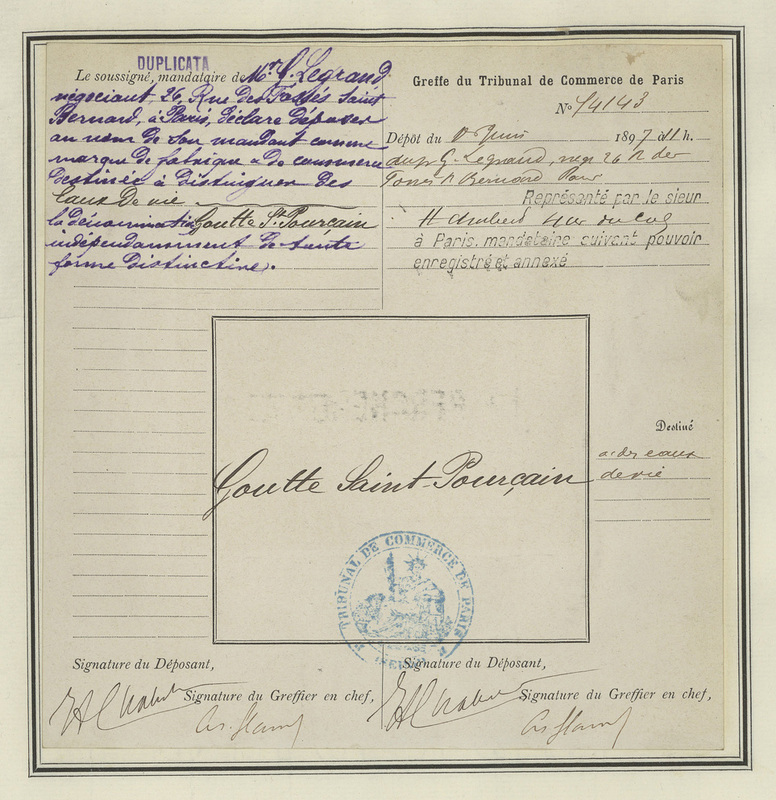 DUPLICATA
Le soussigné, mandataire de Mr G. Legrand
négociant, 26, Rue des Fossés Saint
Bernard, à Paris, déclare déposer
au nom de son mandant comme
marque de fabrique & de commerce
destinée à distinguer des
Eaux de vie
la dénomination Goutte St Pourçain
indépendamment de toute
forme distinctive.
Greffe du Tribunal de Commerce de Paris
No 54143
Dépôt du Juin 1897 à 11 h.
G. Legrand, neg 26 R des
Fossés St Bernard Paris
Représenté par le sieur
à Paris, mandataire suivant pouvoir
enregistré et annexé
Goutte Saint-Pourçain
Destiné
à des eaux
de vie
TRIBUNAL DE COMMERCE DE PARIS
Signature du Déposant,
Signature du Greffier en chef,
Signature du Déposant,
Signature du Greffier en chef,